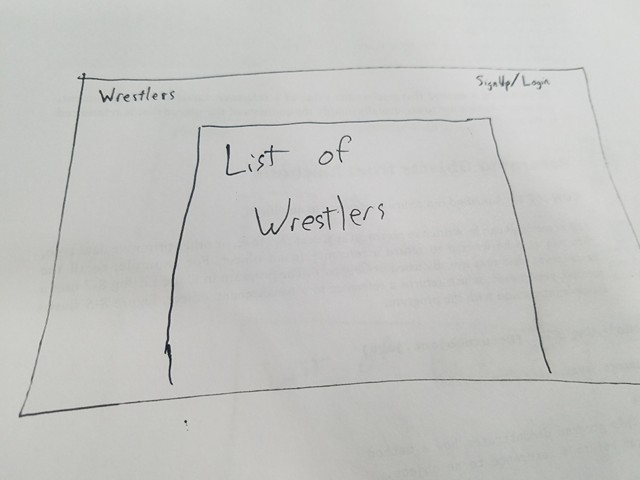 Wrestlers
SignUp/Login
List of
Wrestlers